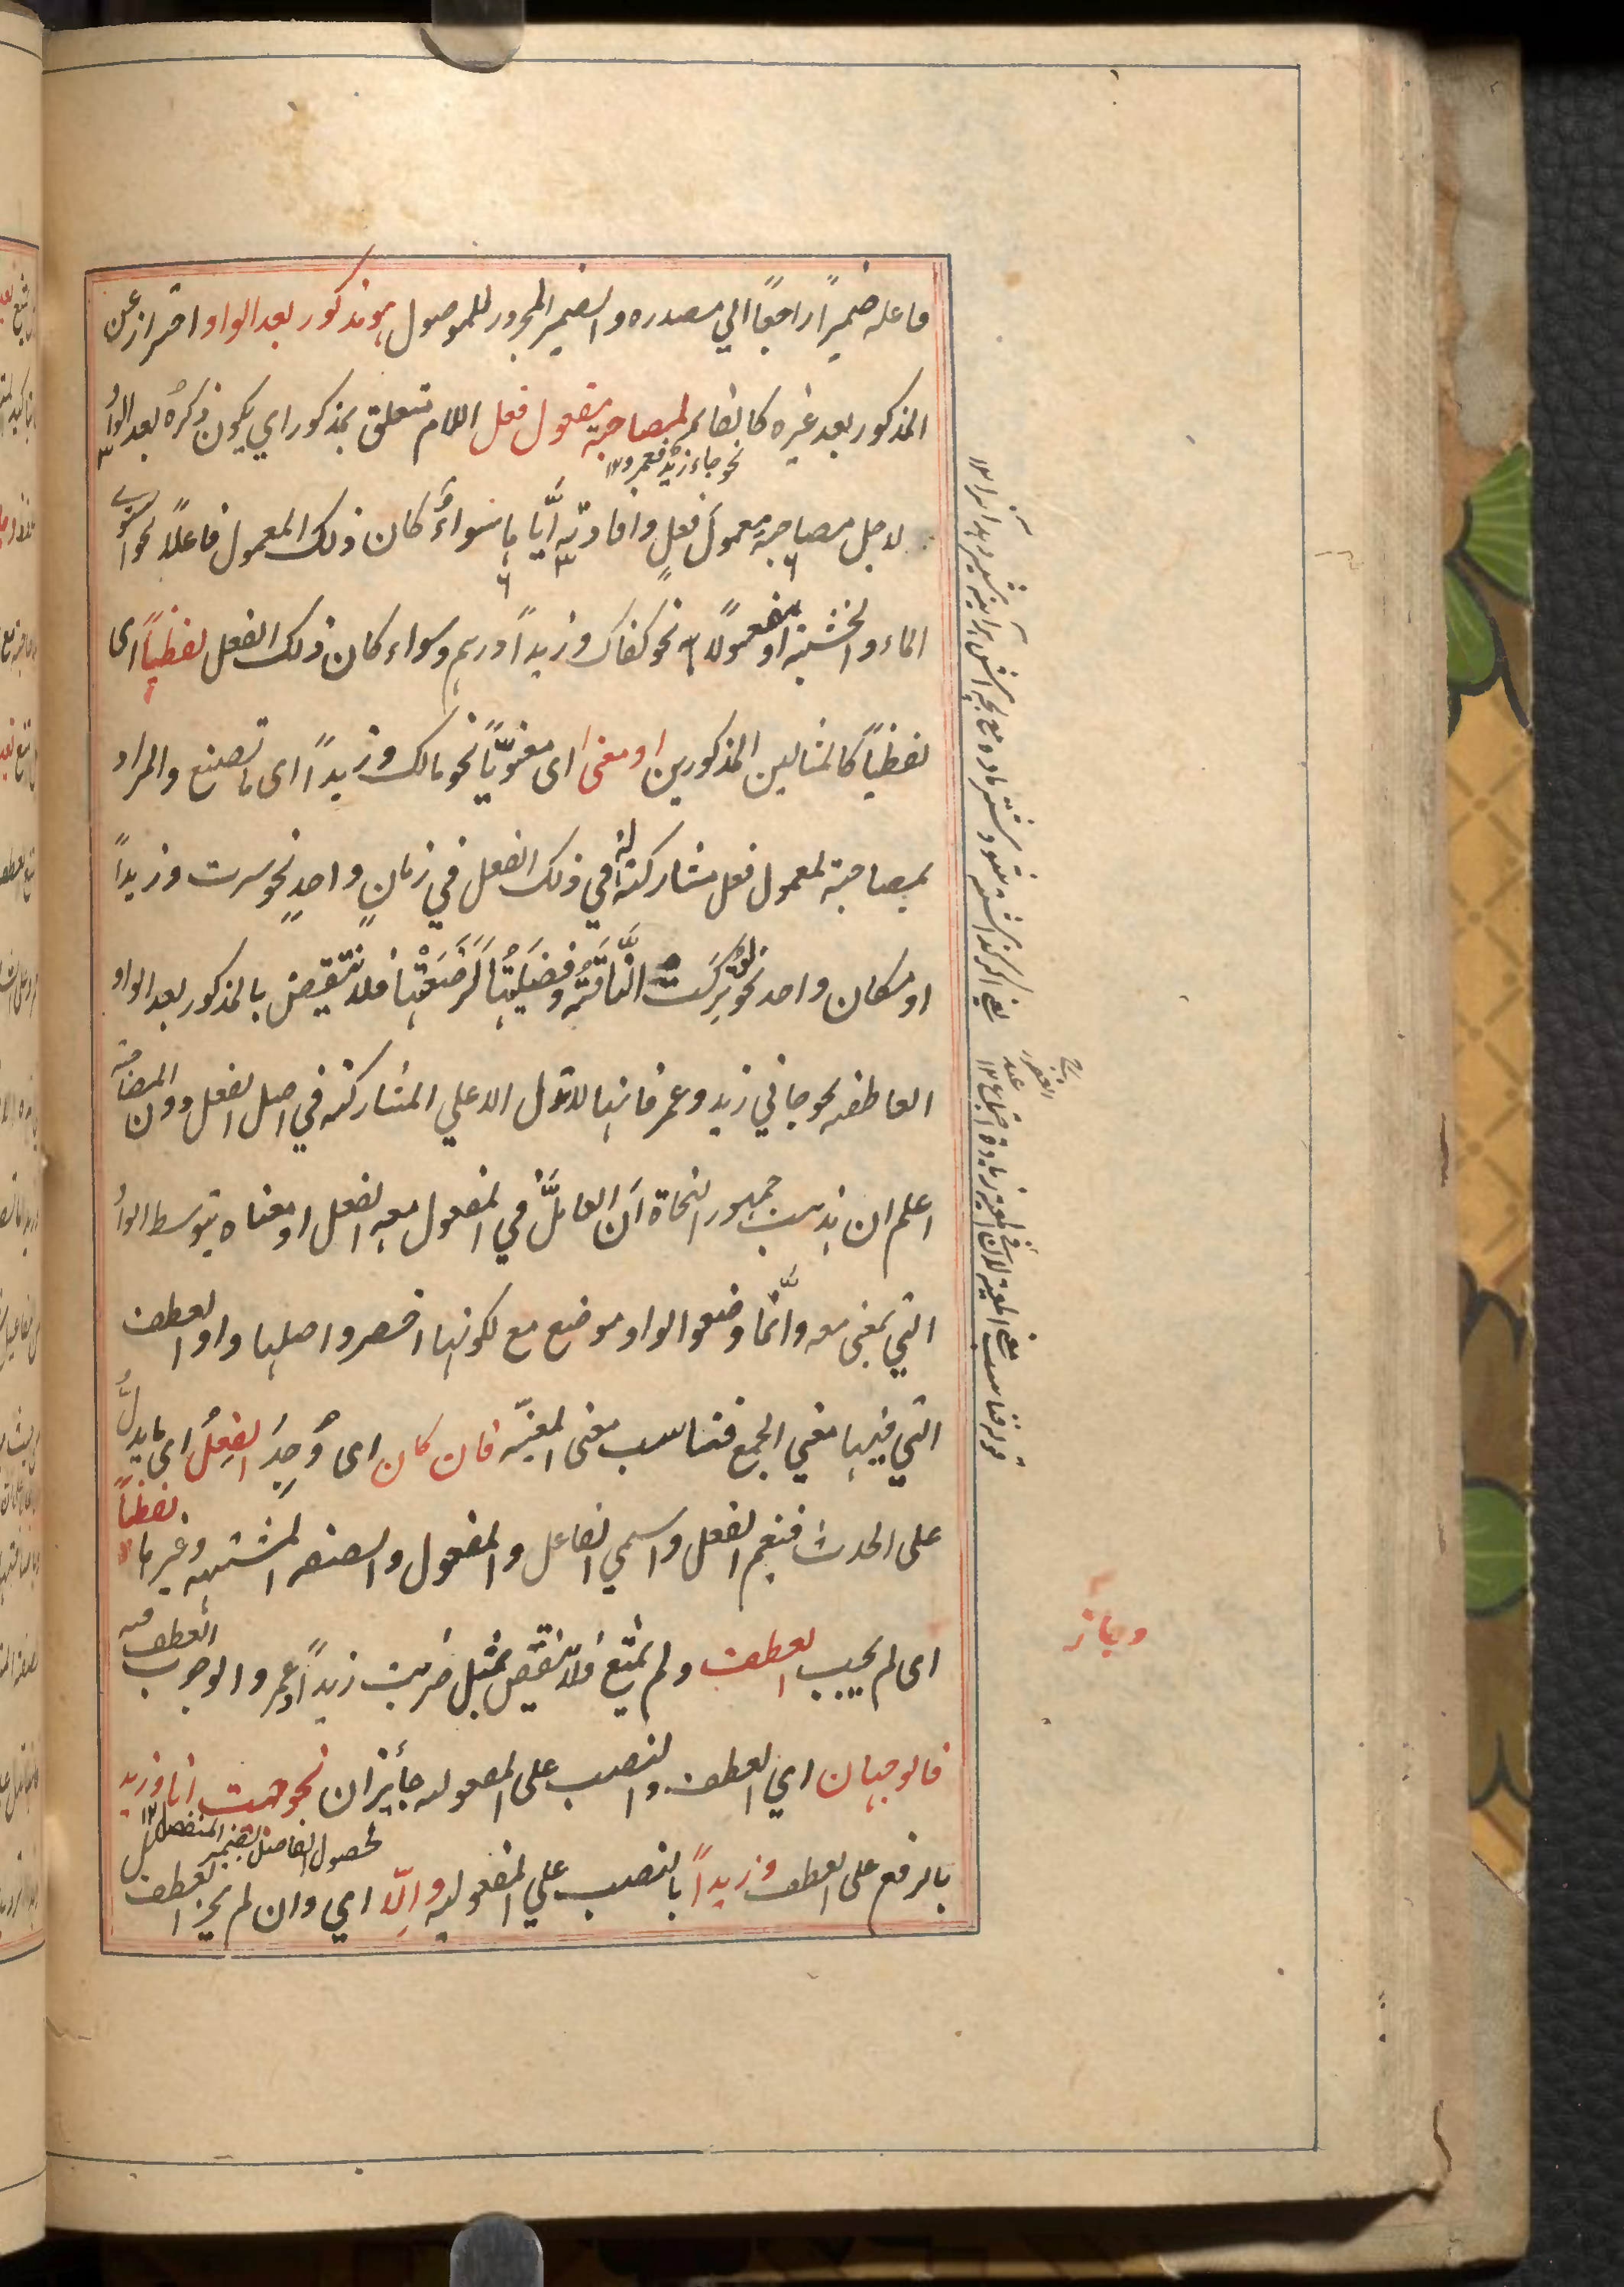 فاعله ضميراً راجعاً الي مصدره والضمير المجرور للموصول هو مذكور بعد الواو احتراز عن
المذكور بعد غيره كالفاء لمصاحبة معمول فعل اللام متعلق بمذكور اي يكون ذكره بعد الواو
نحو جاء زيد فعمرو ١٢
لاجل مصاحبة معمول فعل وافادته ايّاها سواءٌ كان ذلك المعمول فاعلاً نحو استوى
الماء والخشبة او مفعولاً نحو كفاك وزيداً درهم وسواء كان ذلك الفعل لفظياً اى
لفظياً كالمثالين المذكورين او معنى اى معنوياً نحو مالك وزيداً اى ما تصنع والمراد
بمصاحبة لمعمول فعل مشاركته له في ذلك الفعل في زمان واحد نحو سرت وزيداً
او مكان واحد نحو لو تركت الناقة وفصيلتها لرضعتها فلا تنتقض بالمذكور بعد الواو
العاطفه نحو جاني زيد وعمر فانها لا تدل الا علي المشاركة في اصل الفعل دون المصاحبة
اعلم ان مذهب جمهور النحاة ان العامل في المفعول معه الفعل او معناه بتوسط الواو
التي بمعنى مع وانّما وضعوا الواو موضع مع لكونها اخصر واصلها واو العطف
التي فيها معني الجمع فتناسب معنى المعيّة فان كان اى وُجِدَ الفعلُ اى ما يدلُّ
لفظاً
على الحدث فيعم الفعل واسمي الفاعل والمفعول والصفة المشبهة وغيرها
اى لم يجب العطف ولم يمتنع فلا ينتقض بمثل ضربت زيداً وعمروا لوجوب العطف فيه
فالوجهان اي العطف والنصب على المفعوليه جائزان نحو جئت انا وزيد
لحصول الفاصل بضمير المنفصل ١٢
بالرفع على العطف وزيداً بالنصب علي المفعوليه والّا اي وان لم يجز العطف
وجاز